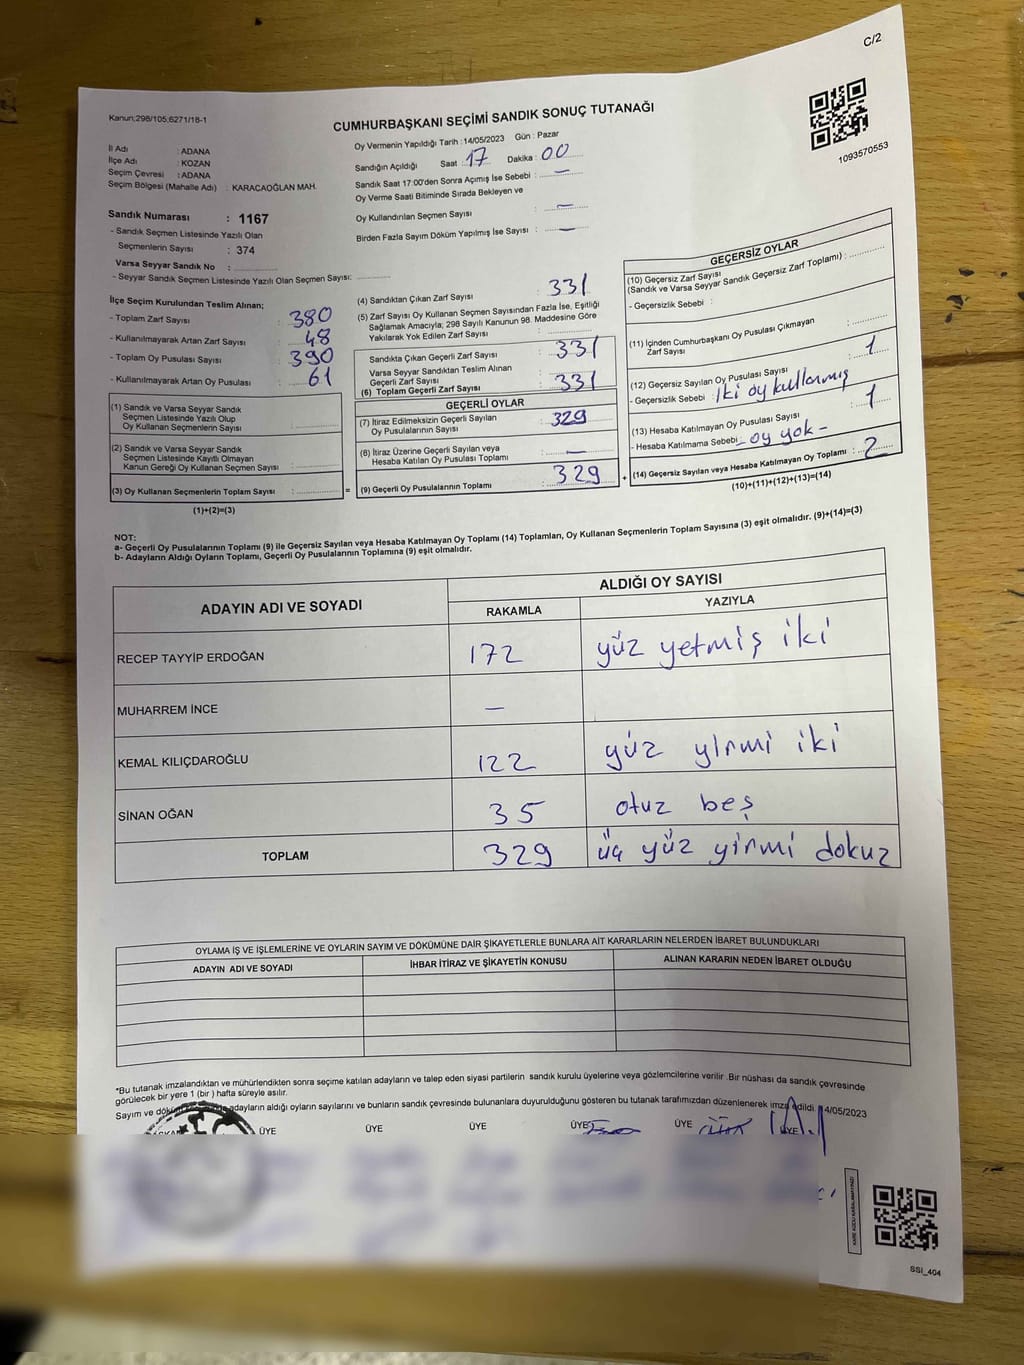 C/2
Kanun;298/105;6271/18-1
CUMHURBAŞKANI SEÇİMİ SANDIK SONUÇ TUTANAĞI
1093570553
İl Adı : ADANA
İlçe Adı : KOZAN
Seçim Çevresi : ADANA
Seçim Bölgesi (Mahalle Adı) : KARACAOĞLAN MAH.
Oy Vermenin Yapıldığı Tarih : 14/05/2023 Gün : Pazar
Sandığın Açıldığı Saat : 17 Dakika : 00
Sandık Saat 17:00'den Sonra Açımış İse Sebebi : —
Oy Verme Saati Bitiminde Sırada Bekleyen ve
Oy Kullandırılan Seçmen Sayısı : —
Birden Fazla Sayım Döküm Yapılmış İse Sayısı : —
Sandık Numarası : 1167
- Sandık Seçmen Listesinde Yazılı Olan
Seçmenlerin Sayısı : 374
Varsa Seyyar Sandık No :
- Seyyar Sandık Seçmen Listesinde Yazılı Olan Seçmen Sayısı:
İlçe Seçim Kurulundan Teslim Alınan;
- Toplam Zarf Sayısı : 380
- Kullanılmayarak Artan Zarf Sayısı : 48
- Toplam Oy Pusulası Sayısı : 390
- Kullanılmayarak Artan Oy Pusulası : 61
(1) Sandık ve Varsa Seyyar Sandık
Seçmen Listesinde Yazılı Olup
Oy Kullanan Seçmenlerin Sayısı :
(2) Sandık ve Varsa Seyyar Sandık
Seçmen Listesinde Kayıtlı Olmayan
Kanun Gereği Oy Kullanan Seçmen Sayısı :
(3) Oy Kullanan Seçmenlerin Toplam Sayısı : =
(1)+(2)=(3)
(4) Sandıktan Çıkan Zarf Sayısı : 331
(5) Zarf Sayısı Oy Kullanan Seçmen Sayısından Fazla İse, Eşitliği
Sağlamak Amacıyla; 298 Sayılı Kanunun 98. Maddesine Göre
Yakılarak Yok Edilen Zarf Sayısı :
Sandıkta Çıkan Geçerli Zarf Sayısı : 331
Varsa Seyyar Sandıktan Teslim Alınan
Geçerli Zarf Sayısı :
(6) Toplam Geçerli Zarf Sayısı : 331
GEÇERLİ OYLAR
(7) İtiraz Edilmeksizin Geçerli Sayılan
Oy Pusulalarının Sayısı : 329
(8) İtiraz Üzerine Geçerli Sayılan veya
Hesaba Katılan Oy Pusulası Toplamı : —
(9) Geçerli Oy Pusulalarının Toplamı : 329 +
GEÇERSİZ OYLAR
(10) Geçersiz Zarf Sayısı
(Sandık ve Varsa Seyyar Sandık Geçersiz Zarf Toplamı) :
- Geçersizlik Sebebi :
(11) İçinden Cumhurbaşkanı Oy Pusulası Çıkmayan
Zarf Sayısı :
(12) Geçersiz Sayılan Oy Pusulası Sayısı : 1
- Geçersizlik Sebebi : iki oy kullanmış
(13) Hesaba Katılmayan Oy Pusulası Sayısı : 1
- Hesaba Katılmama Sebebi - oy yok -
(14) Geçersiz Sayılan veya Hesaba Katılmayan Oy Toplamı : 2
(10)+(11)+(12)+(13)=(14)
NOT:
a- Geçerli Oy Pusulalarının Toplamı (9) ile Geçersiz Sayılan veya Hesaba Katılmayan Oy Toplamı (14) Toplamları, Oy Kullanan Seçmenlerin Toplam Sayısına (3) eşit olmalıdır. (9)+(14)=(3)
b- Adayların Aldığı Oyların Toplamı, Geçerli Oy Pusulalarının Toplamına (9) eşit olmalıdır.
ADAYIN ADI VE SOYADI
ALDIĞI OY SAYISI
RAKAMLA YAZIYLA
RECEP TAYYİP ERDOĞAN 172 yüz yetmiş iki
MUHARREM İNCE —
KEMAL KILIÇDAROĞLU 122 yüz yirmi iki
SİNAN OĞAN 35 otuz beş
TOPLAM 329 üç yüz yirmi dokuz
OYLAMA İŞ VE İŞLEMLERİNE VE OYLARIN SAYIM VE DÖKÜMÜNE DAİR ŞİKAYETLERLE BUNLARA AİT KARARLARIN NELERDEN İBARET BULUNDUKLARI
ADAYIN ADI VE SOYADI İHBAR İTİRAZ VE ŞİKAYETİN KONUSU ALINAN KARARIN NEDEN İBARET OLDUĞU
*Bu tutanak imzalandıktan ve mühürlendikten sonra seçime katılan adayların ve talep eden siyasi partilerin sandık kurulu üyelerine veya gözlemcilerine verilir .Bir nüshası da sandık çevresinde
görülecek bir yere 1 (bir ) hafta süreyle asılır.
Sayım ve adayların aldığı oyların sayılarını ve bunların sandık çevresinde bulunanlara duyurulduğunu gösteren bu tutanak tarafımızdan düzenlenerek imza edildi. 14/05/2023
ÜYE ÜYE ÜYE ÜYE ÜYE ÜYE
SSI_404